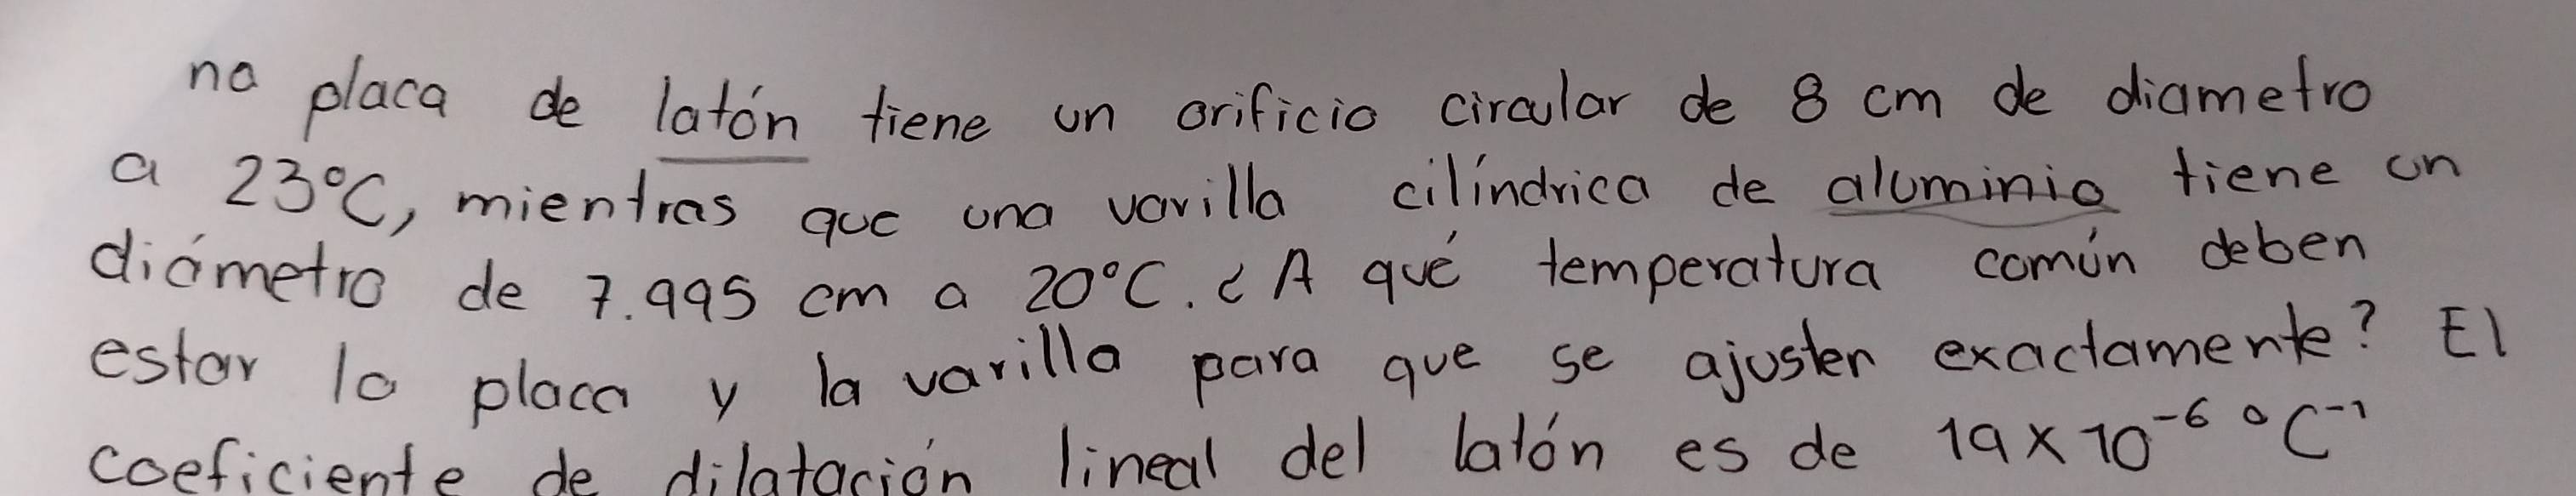 na placa de latón tiene un orificio circular de 8 cm de diametro
a 23°C, mientras que una varilla cilíndrica de aluminio tiene un
diámetro de 7.995 cm a 20°C. ¿A qué temperatura común deben
estar la placa y la varilla para que se ajusten exactamente? El
coeficiente de dilatación lineal del latón es de 19x10⁻⁶ °C⁻¹